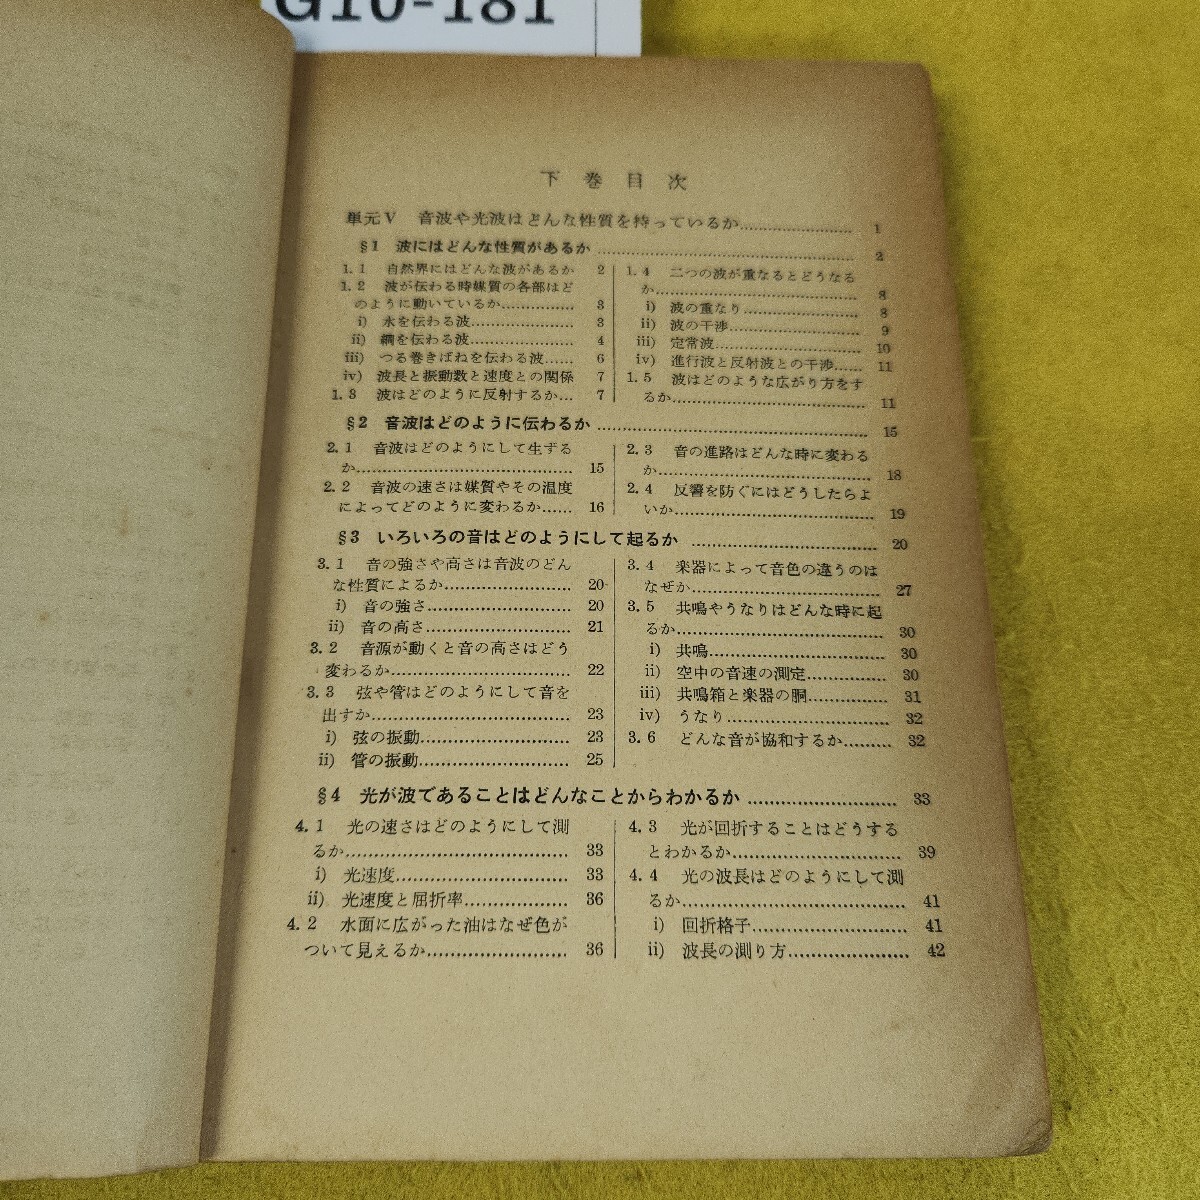 G10-181
下巻目次
単元V 音波や光波はどんな性質を持っているか 1
§1 波にはどんな性質があるか 2
1.1 自然界にはどんな波があるか 2
1.2 波が伝わる時媒質の各部はど
のように動いているか 3
i) 水を伝わる波 3
ii) 綱を伝わる波 4
iii) つる巻きばねを伝わる波 6
iv) 波長と振動数と速度との関係 7
1.3 波はどのように反射するか 7
1.4 二つの波が重なるとどうなる
か 8
i) 波の重なり 8
ii) 波の干渉 9
iii) 定常波 10
iv) 進行波と反射波との干渉 11
1.5 波はどのような広がり方をす
るか 11
§2 音波はどのように伝わるか 15
2.1 音波はどのようにして生ずる
か 15
2.2 音波の速さは媒質やその温度
によってどのように変わるか 16
2.3 音の進路はどんな時に変わる
か 18
2.4 反響を防ぐにはどうしたらよ
いか 19
§3 いろいろの音はどのようにして起るか 20
3.1 音の強さや高さは音波のどん
な性質によるか 20
i) 音の強さ 20
ii) 音の高さ 21
3.2 音源が動くと音の高さはどう
変わるか 22
3.3 弦や管はどのようにして音を
出すか 23
i) 弦の振動 23
ii) 管の振動 25
3.4 楽器によって音色の違うのは
なぜか 27
3.5 共鳴やうなりはどんな時に起
るか 30
i) 共鳴 30
ii) 空中の音速の測定 30
iii) 共鳴箱と楽器の胴 31
iv) うなり 32
3.6 どんな音が協和するか 32
§4 光が波であることはどんなことからわかるか 33
4.1 光の速さはどのようにして測
るか 33
i) 光速度 33
ii) 光速度と屈折率 36
4.2 水面に広がった油はなぜ色が
ついて見えるか 36
4.3 光が回折することはどうする
とわかるか 39
4.4 光の波長はどのようにして測
るか 41
i) 回折格子 41
ii) 波長の測り方 42